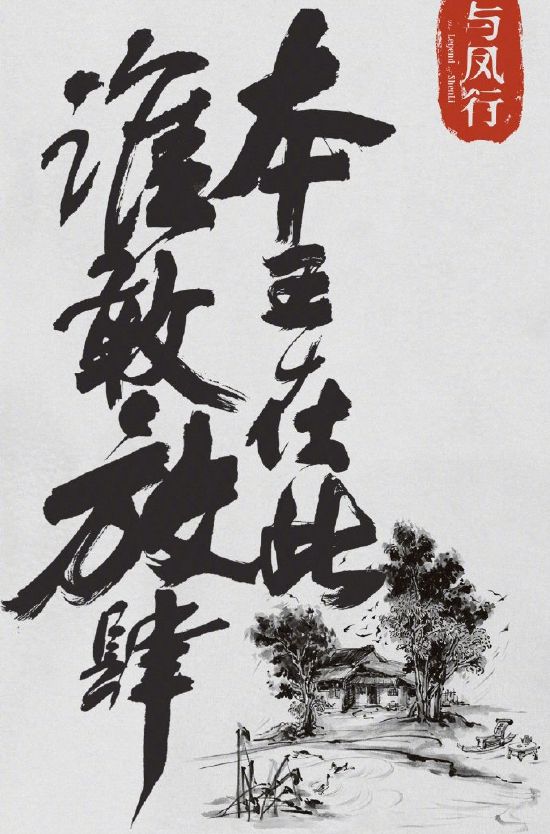 与凤行
The Legend of ShenLi
本王在此
谁敢放肆